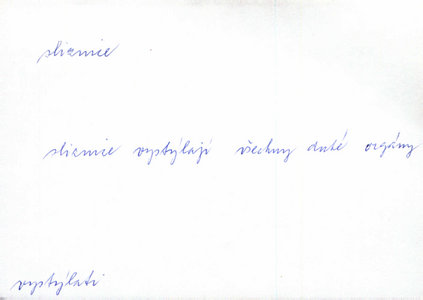 sliznice
sliznice vystýlají všechny duté orgány
vystýlati